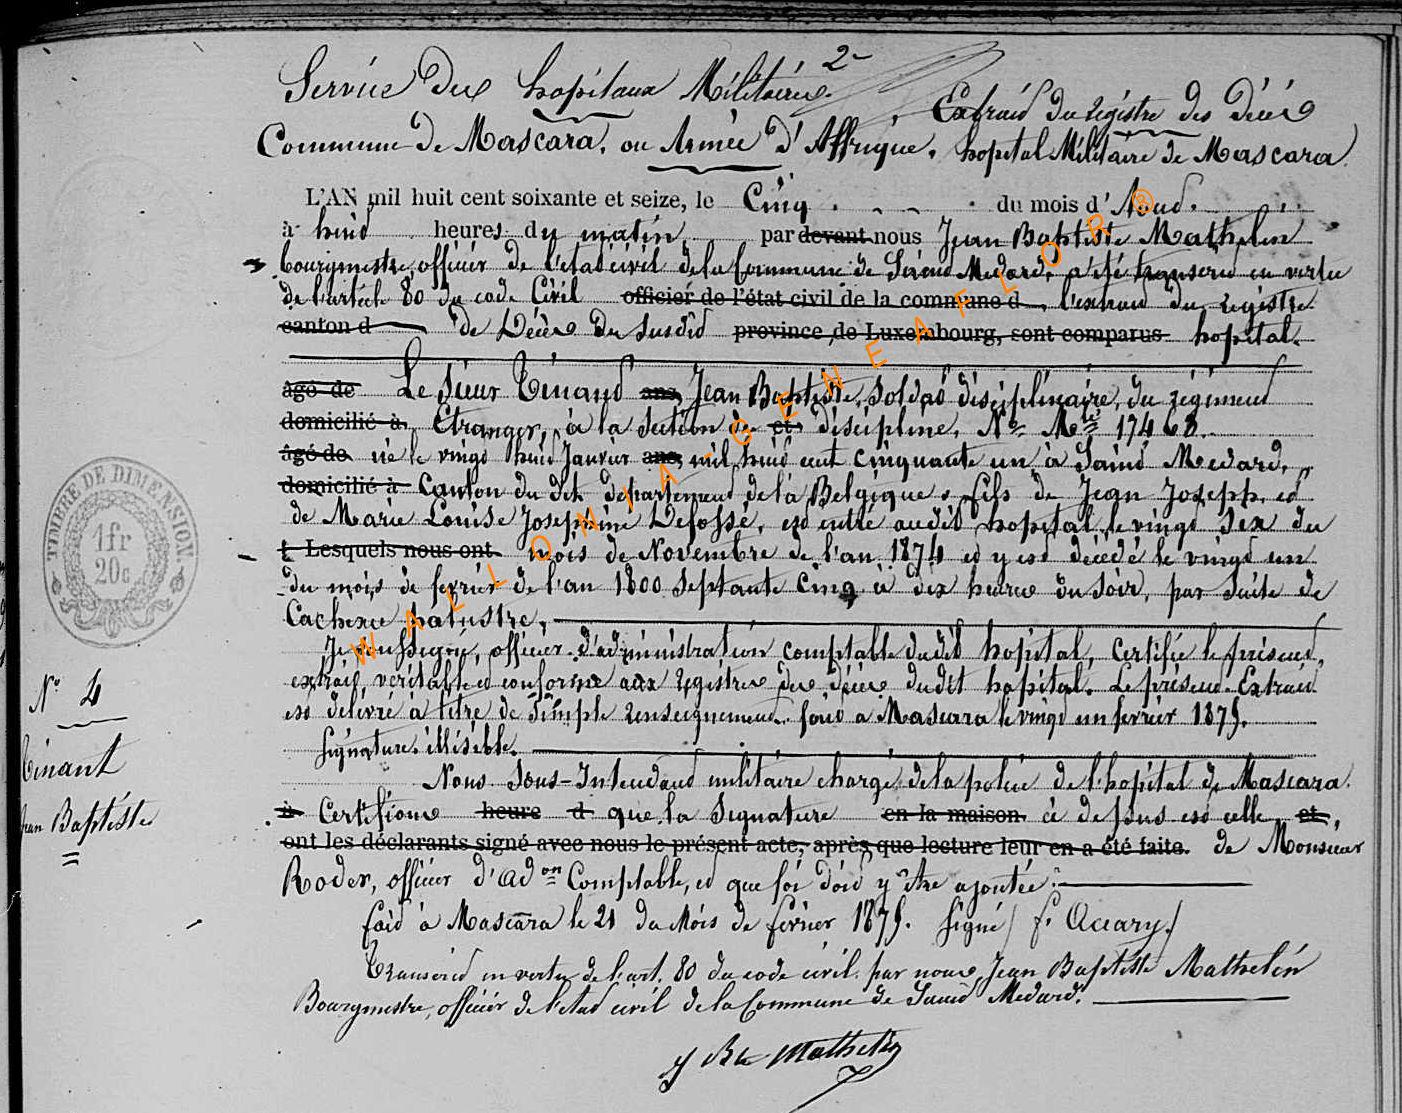 2
Service des hopitaux Militaires.
Extrait du registre des Décès
Commune de Mascara, ou Armée d'Affrique. hopital Militaire de Mascara
L'AN mil huit cent soixante et seize, le Cinq du mois d'Aout.
à huit heures du matin par devant nous Jean Baptiste Mathelin
bourgmestre, officier de l'état civil de la Commune de Saint Medard, a été transcrit en vertu
de l'article 80 du code Civil officier de l'état civil de la commune d l'extrait du registre
canton d de Décès du susdit province de Luxembourg, sont comparus hopital.
âgé de Le Sieur Tinant ans, Jean Baptiste, soldat disciplinaire, du régiment
domicilié à Etranger, à la section de et discipline, No Mle 17468.
âgé de né le vingt huit Janvier ans, mil huit cent cinquante un à Saint Medard,
domicilié à Canton du dit, département de la Belgique, fils de Jean Joseph, et
de Marie Louise Josephine Defossé, est entré audit hopital le vingt six du
t Lesquels nous ont mois de Novembre de l'an 1874 et y est décédé le vingt un
du mois de fevrier de l'an 1800 septante cinq à dix heures du soir, par suite de
Cachexie palustre,
Je soussigné, officier d'administration comptable dudit hopital, certifie le présent,
extrait véritable et conforme aux registres des décès dudit hopital. Le présent Extrait
est délivré à titre de simple renseignement. fait a Mascara le vingt un fevrier 1875.
signature illisible.
Nous Sous-Intendant militaire chargé de la police de l'hopital de Mascara.
à Certifions heure d que la signature en la maison ci dessus est celle et,
ont les déclarants signé avec nous le présent acte, après que lecture leur en a été faite. de Monsieur
Roder, officier d'adon Comptable, et que foi doit y être ajoutée.
fait à Mascara le 21 du Mois de fevrier 1875. signé / f. Accary /
Transcrit en vertu de l'art. 80 du code civil par nous, Jean Baptiste Mathelin
Bourgmestre, officier de l'état civil de la Commune de Saint Medard.
J Bte Mathelin
TIMBRE DE DIMENSION.
1fr
20c
No 4
Tinant
Jean Baptiste
WALLONIA-GENEAFLOR®